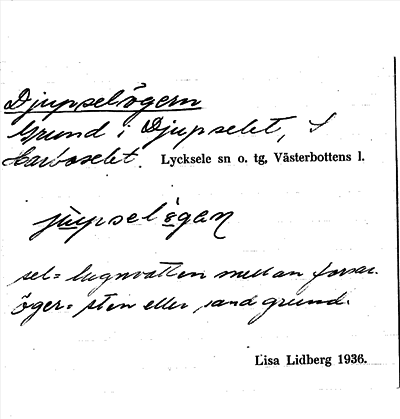 Djupselögern
Grund i Djupselet, i
Lycksele sn o. tg, Västerbottens l.
jupselögan
sel = lugnvatten mellan forsar.
öger = sten eller sandgrund.
Lisa Lidberg 1936.